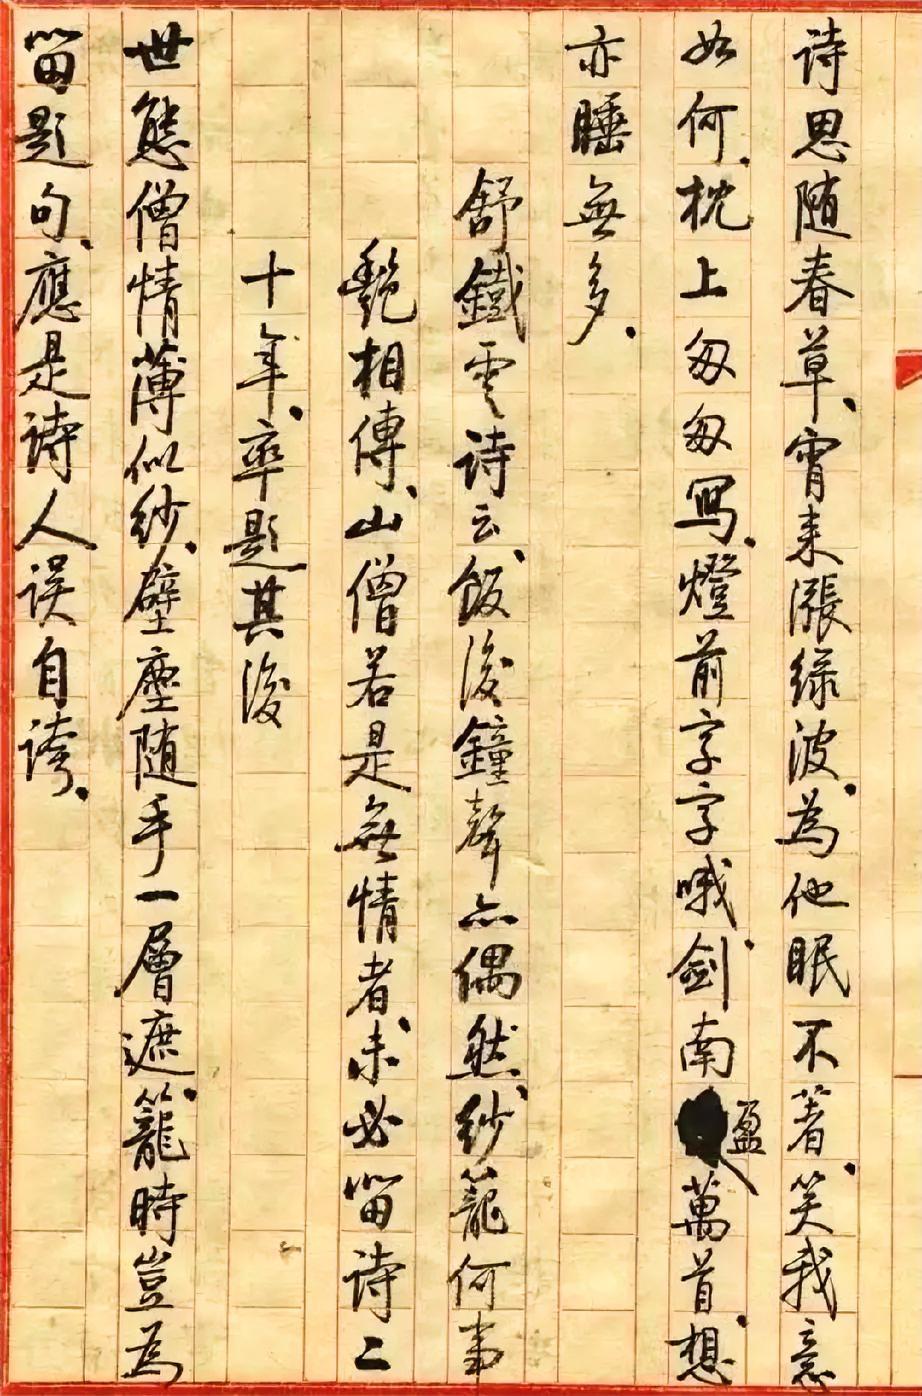 诗思随春草、宵来漲緑波、為他眠不著、笑我意
如何、枕上匆匆寫、燈前字字哦、劍南盈萬首、想
亦睡無多、
舒鐵雲诗云、飯後鐘聲亦偶然、紗籠何事
艷相傳、山僧若是無情者、未必留诗二
十年、率題其後
世態僧情薄似紗、壁塵随手一層遮、籠時豈為
留題句、應是诗人误自誇、